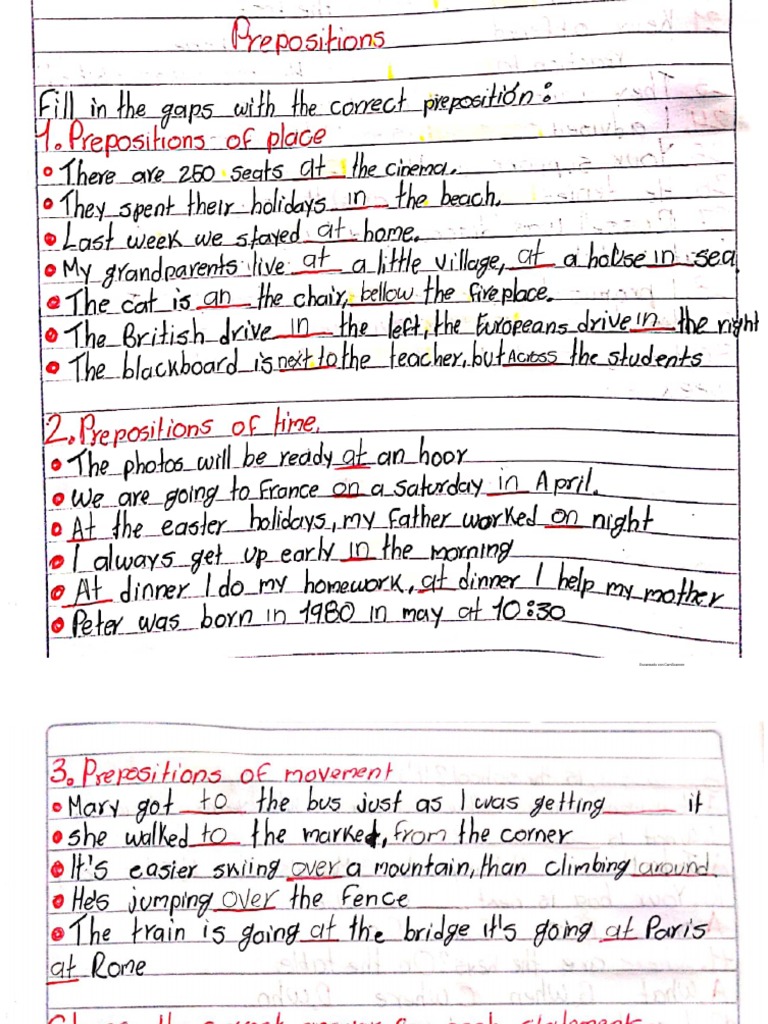 Prepositions
Fill in the gaps with the correct preposition:
1. Prepositions of place
• There are 250 seats at the cinema.
• They spent their holidays in the beach.
• Last week we stayed at home.
• My grandparents live at a little village, at a house in sea
• The cat is an the chair, bellow the fireplace.
• The British drive in the left, the Europeans drive in the right
• The blackboard is next to the teacher, but Across the students
2. Prepositions of time.
• The photos will be ready at an hoor
• We are going to France on a saturday in April.
• At the easter holidays, my father worked on night
• I always get up early in the morning
• At dinner I do my homework, at dinner I help my mother
• Peter was born in 1980 in may at 10:30
Escaneado con CamScanner
3. Prepositions of movement
• Mary got to the bus just as I was getting ____ it
• she walked to the market, from the corner
• It's easier skiing over a mountain, than climbing around.
• He's jumping over the fence
• The train is going at the bridge it's going at Paris
at Rome